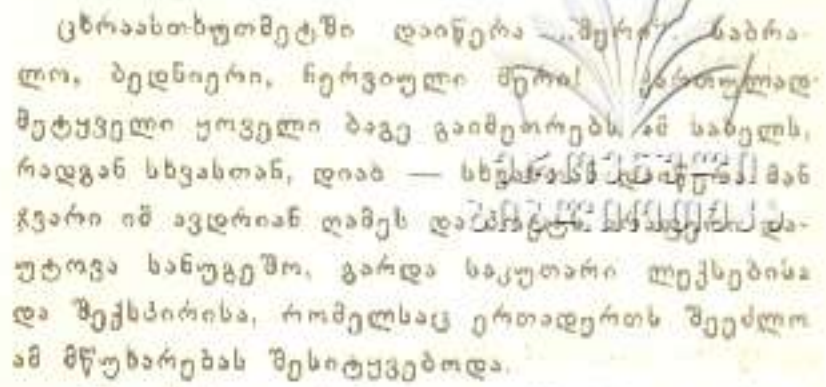 ცხრაასთხუთმეტში დაიწერა „მერი“. საბრა-
ლო, ბედნიერი, ნერვიული მერი! ქართულად
მეტყველი ყოველი ბაგე გაიმეორებს ამ სახელს,
რადგან სხვასთან, დიახ — სხვასთან დაიწერა მან
ჯვარი იმ ავდრიან ღამეს და პოეტს არაფერი და-
უტოვა სანუგეშო, გარდა საკუთარი ლექსებისა
და შექსპირისა, რომელსაც ერთადერთს შეეძლო
ამ მწუხარებას შესიტყვებოდა.